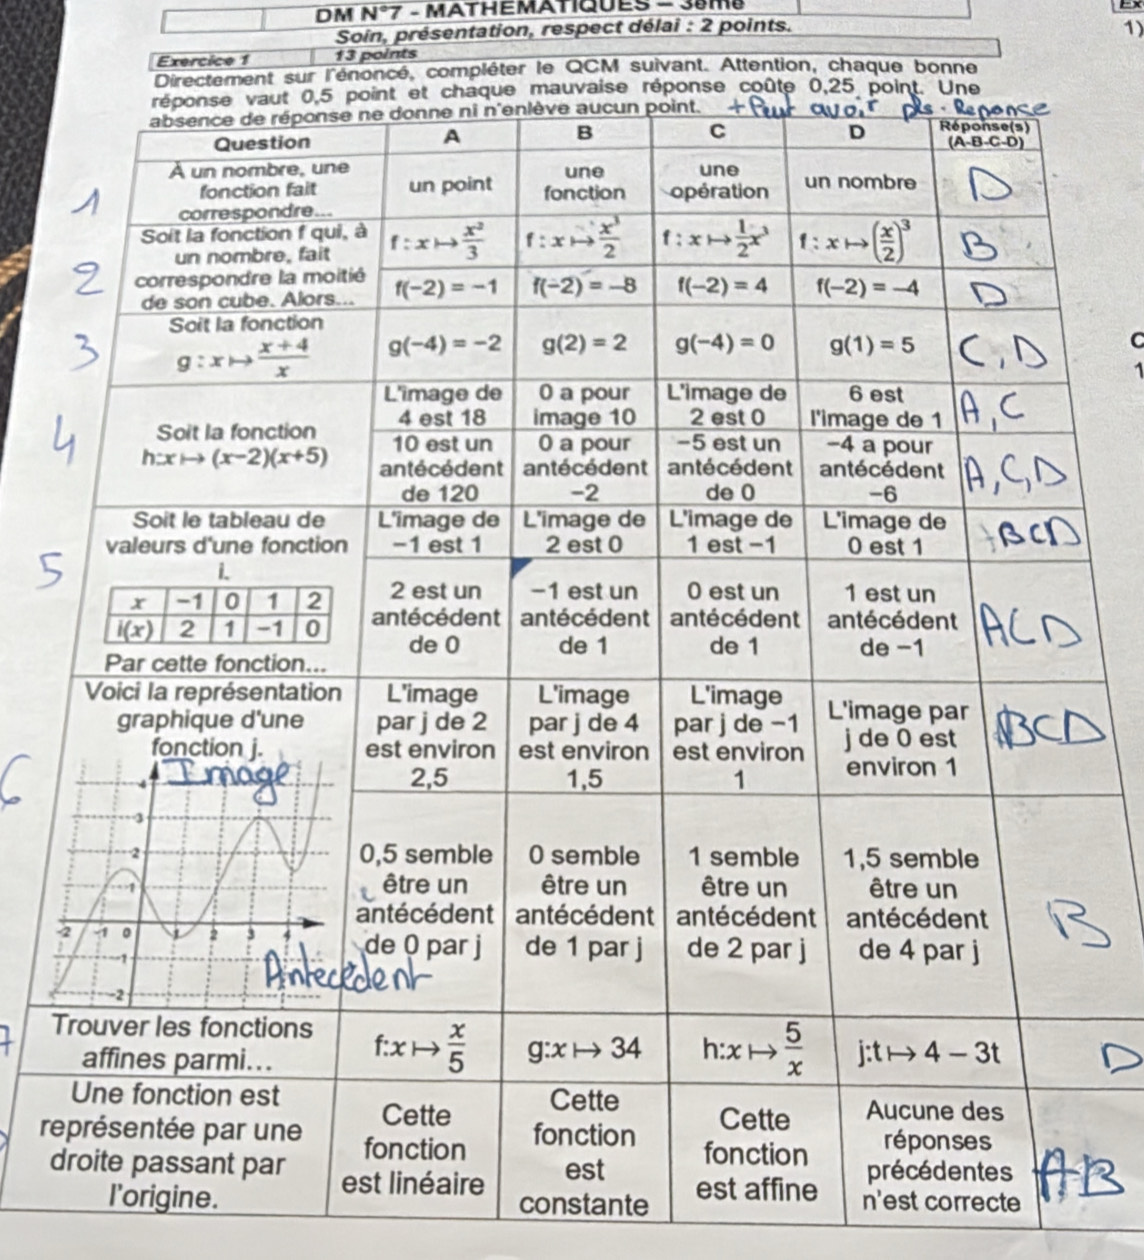 DM N°7 - MATHEMATIQUES - 3ème
Soin, présentation, respect délai : 2 points.
Exercice 1 13 points
Directement sur l'énoncé, compléter le QCM suivant. Attention, chaque bonne
réponse vaut 0,5 point et chaque mauvaise réponse coûte 0,25 point. Une
absence de réponse ne donne ni n'enlève aucun point. + Peut avoir pls. Reponse
Question A B C D Réponse(s)
(A-B-C-D)
1 À un nombre, une
fonction fait
correspondre...
un point
une
fonction
une
opération
un nombre
D
2 Soit la fonction f qui, à
un nombre, fait
correspondre la moitié
de son cube. Alors...
f : x ↦ x²/3
f : x ↦ x³/2
f : x ↦ 1/2 x³
f : x ↦ (x/2)³
B
f(−2) = −1
f(−2) = −8
f(−2) = 4
f(−2) = −4
D
3 Soit la fonction
g : x ↦ (x + 4)/x
g(−4) = −2
g(2) = 2
g(−4) = 0
g(1) = 5
C, D
4 Soit la fonction
h:x ↦ (x−2)(x+5)
L'image de
4 est 18
0 a pour
image 10
L'image de
2 est 0
6 est
l'image de 1
A, C
10 est un
antécédent
de 120
0 a pour
antécédent
−2
−5 est un
antécédent
de 0
−4 a pour
antécédent
−6
A, C, D
5 Soit le tableau de
valeurs d'une fonction
i.
x −1 0 1 2
i(x) 2 1 −1 0
Par cette fonction...
L'image de
−1 est 1
L'image de
2 est 0
L'image de
1 est −1
L'image de
0 est 1
BCD
2 est un
antécédent
de 0
−1 est un
antécédent
de 1
0 est un
antécédent
de 1
1 est un
antécédent
de −1
ACD
6 Voici la représentation
graphique d'une
fonction j.
Image
4
3
2
1
-2 -1 0 1 2 3 4
-1
-2
Antecédent
L'image
par j de 2
est environ
2,5
L'image
par j de 4
est environ
1,5
L'image
par j de −1
est environ
1
L'image par
j de 0 est
environ 1
BCD
0,5 semble
être un
antécédent
de 0 par j
0 semble
être un
antécédent
de 1 par j
1 semble
être un
antécédent
de 2 par j
1,5 semble
être un
antécédent
de 4 par j
B
7 Trouver les fonctions
affines parmi...
f:x ↦ x/5
g:x ↦ 34
h:x ↦ 5/x
j:t ↦ 4 − 3t
D
Une fonction est
représentée par une
droite passant par
l'origine.
Cette
fonction
est linéaire
Cette
fonction
est
constante
Cette
fonction
est affine
Aucune des
réponses
précédentes
n'est correcte
AB
Ex
1)
C
1